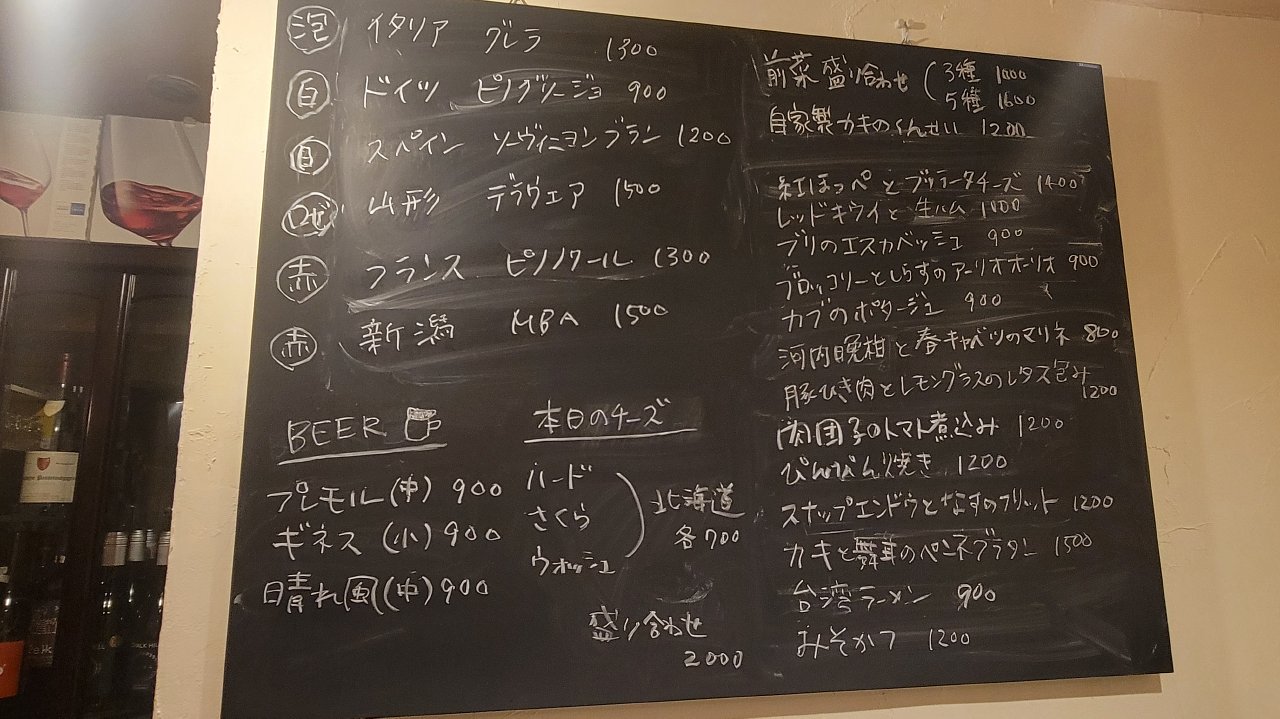 泡 イタリア グレラ 1300
白 ドイツ ピノグリージョ 900
白 スペイン ソーヴィニヨンブラン 1200
ロゼ 山形 デラウェア 1500
赤 フランス ピノノワール 1300
赤 新潟 MBA 1500
BEER
プレモル(中) 900
ギネス (小) 900
晴れ風(中) 900
本日のチーズ
ハード
さくら
ウォッシュ
北海道
各700
盛り合わせ
2000
前菜盛り合わせ 3種 1000
5種 1600
自家製カキのくんせい 1200
紅ほっぺとブッラータチーズ 1400
レッドキウイと生ハム 1000
ブリのエスカベッシュ 900
ブロッコリーとしらすのアーリオオーリオ 900
カブのポタージュ 900
河内晩柑と春キャベツのマリネ 800
豚ひき肉とレモングラスのレタス包み
1200
肉団子のトマト煮込み 1200
ぴんぴん焼き 1200
スナップエンドウとなすのフリット 1200
カキと舞茸のペンネグラタン 1500
台湾ラーメン 900
みそかつ 1200